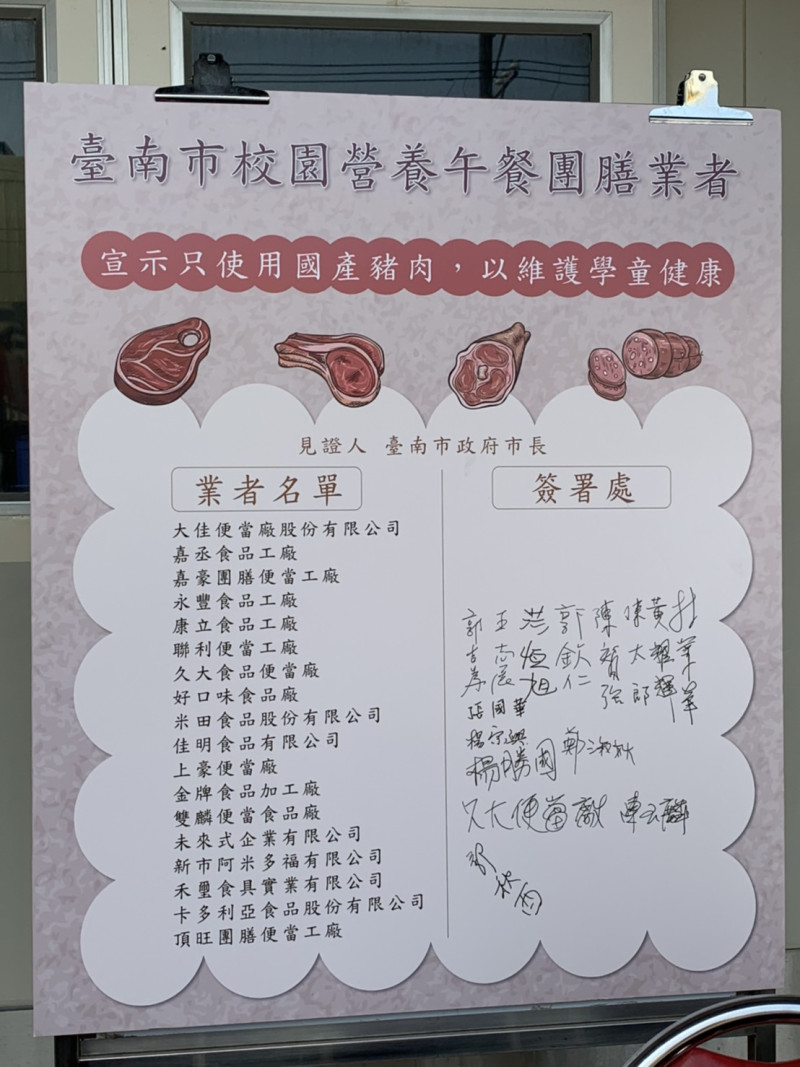 臺南市校園營養午餐團膳業者
宣示只使用國產豬肉，以維護學童健康
見證人 臺南市政府市長
業者名單
大佳便當廠股份有限公司
嘉丞食品工廠
嘉豪團膳便當工廠
永豐食品工廠
康立食品工廠
聯利便當工廠
久大食品便當廠
好口味食品廠
米田食品股份有限公司
佳明食品有限公司
上豪便當廠
金牌食品加工廠
雙麟便當食品廠
未來式企業有限公司
新市阿米多福有限公司
禾璽食具實業有限公司
卡多利亞食品股份有限公司
頂旺團膳便當工廠
簽署處
郭
王志展
洪恒旭
郭欽仁
陳
陳太郎
黃耀輝
杜
張國華
楊勝國
鄭淑
久大便當廠